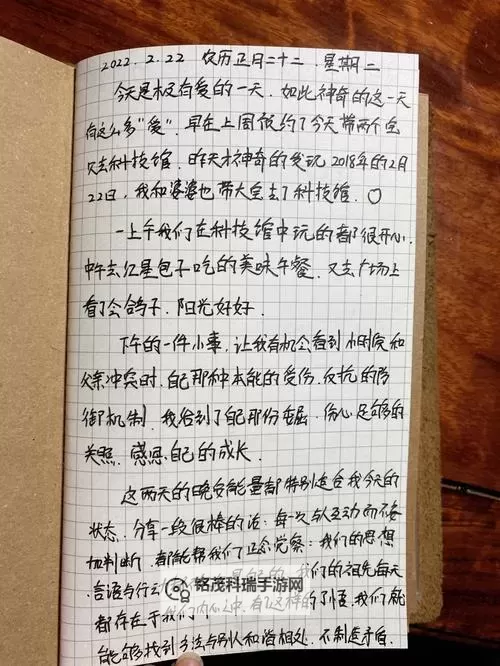 2022.2.22 农历正月二十二 星期二
今天是极有爱的一天，如此神奇的这一天
有这么多“爱”，早在上周就约了今天带两个宝
贝去科技馆，昨天才神奇的发现2018年的2月
22日，我和婆婆也带大宝去了科技馆。
一上午我们在科技馆中玩的都很开心，
中午去红星包子吃的美味午餐，又去广场上
看了会鸽子，阳光好好。
下午的一件小事，让我有机会看到小时候和
父亲冲突时，自己那种本能的受伤、反抗的防
御机制，我给到了自己那份委屈、伤心足够的
关照，感恩自己的成长。
这两天的晚安能量都特别适合我今天的
状态，分享一段很棒的话：每一次与人互动而不妄
加判断，都能帮我们正念觉察：我们的思想
言语与行动 我们的祖先每天
都存在于我们 我们内心之中，有了这样的了悟，我们就
能够找到方法与别人和谐相处，不制造矛盾，
铭茂科瑞手游网